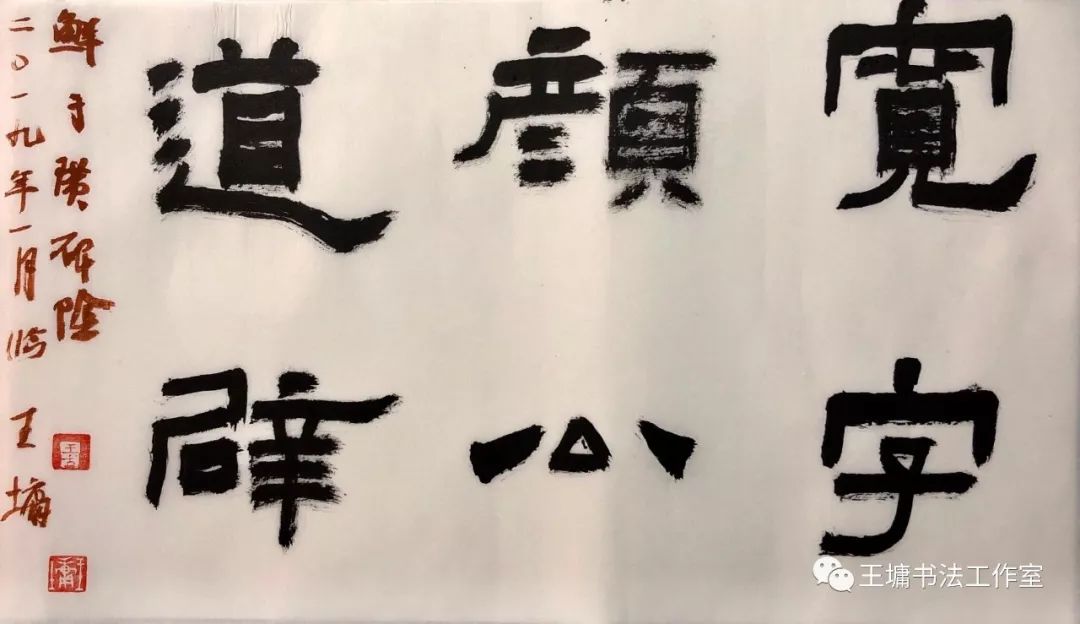 寬字
顔公
道辟
鮮于璜碑陰
二〇一九年一月临 王墉
王墉书法工作室